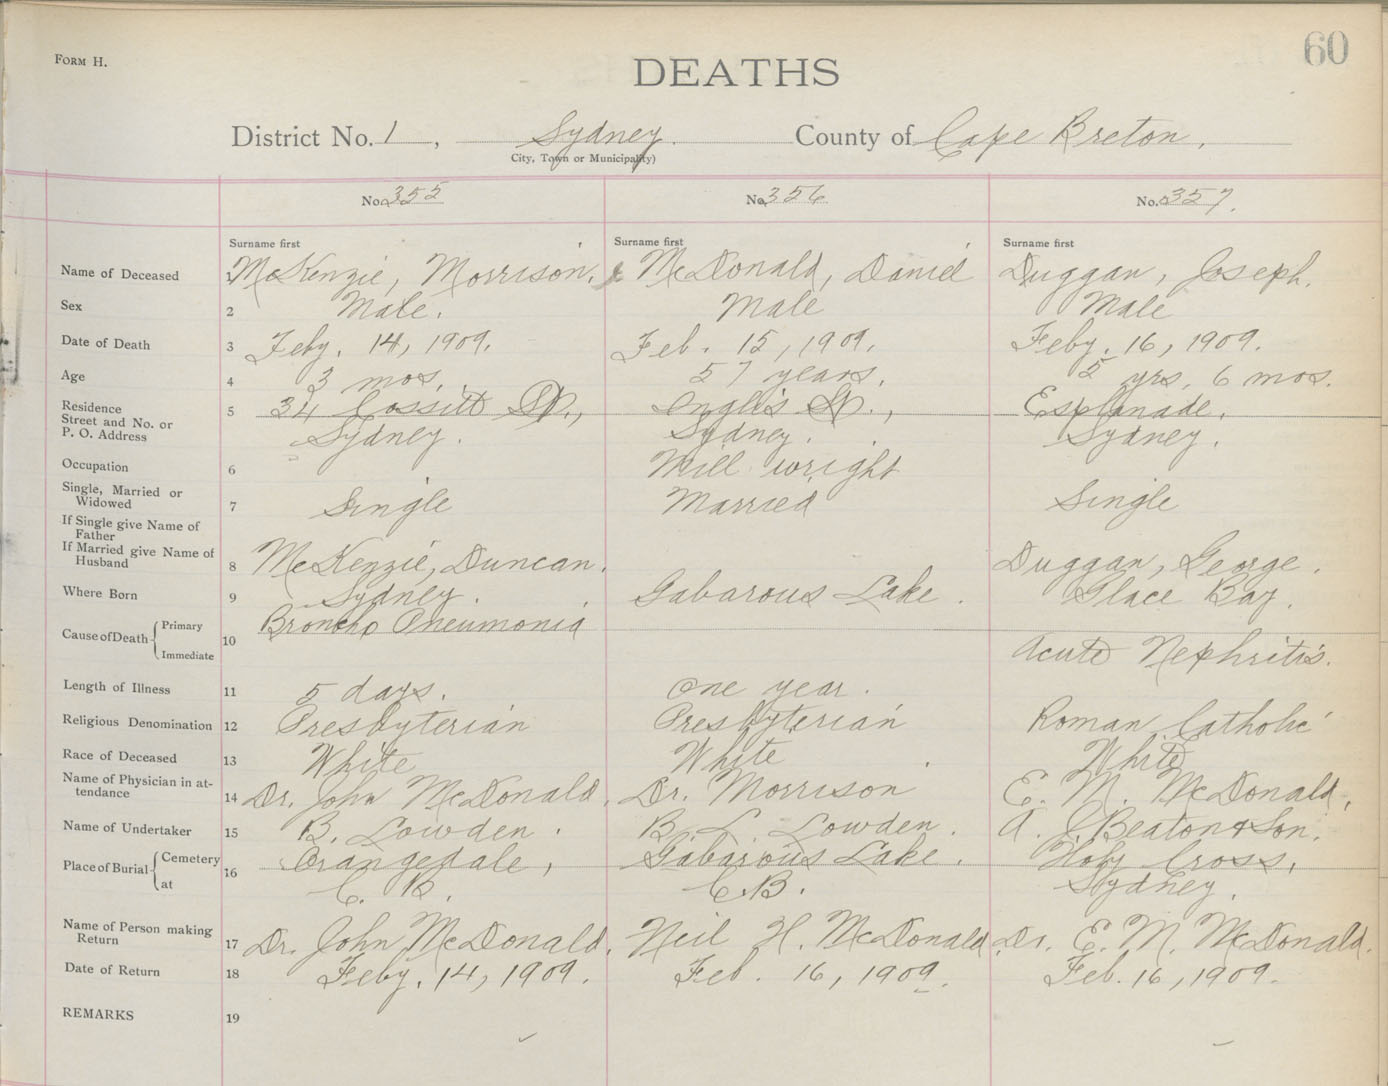 60
FORM H.
DEATHS
District No. 1, Sydney. County of Cape Breton.
City, Town or Municipality)
No. 355 No. 356 No. 357.
Surname first Surname first Surname first
Name of Deceased 1 McKenzie, Morrison. McDonald, Daniel Duggan, Joseph.
Sex 2 Male. Male Male
Date of Death 3 Feby. 14, 1909. Feb. 15, 1909. Feby. 16, 1909.
Age 4 3 mos. 57 years. 5 yrs. 6 mos.
Residence
Street and No. or
P. O. Address 5 34 Cossitt St., Inglis St., Esplanade.
Sydney. Sydney. Sydney.
Occupation 6 Mill wright
Single, Married or
Widowed 7 Single Married Single
If Single give Name of
Father
If Married give Name of
Husband 8 McKenzie, Duncan. Duggan, George.
Where Born 9 Sydney. Gabarous Lake. Glace Bay.
Cause of Death { Primary 10 Broncho Pneumonia
Immediate Acute Nephritis.
Length of Illness 11 5 days. One year.
Religious Denomination 12 Presbyterian Presbyterian Roman Catholic
Race of Deceased 13 White White White
Name of Physician in at-
tendance 14 Dr. John McDonald. Dr. Morrison E. M. McDonald.
Name of Undertaker 15 B. Lowden. B. L. Lowden. A. J. Beaton & Son.
Place of Burial { Cemetery 16 Orangedale, Gabarous Lake. Holy Cross,
at C. B. C.B. Sydney.
Name of Person making
Return 17 Dr. John McDonald. Neil H. McDonald Dr. E. M. McDonald.
Date of Return 18 Feby. 14, 1909. Feb. 16, 1909. Feb. 16, 1909.
REMARKS 19